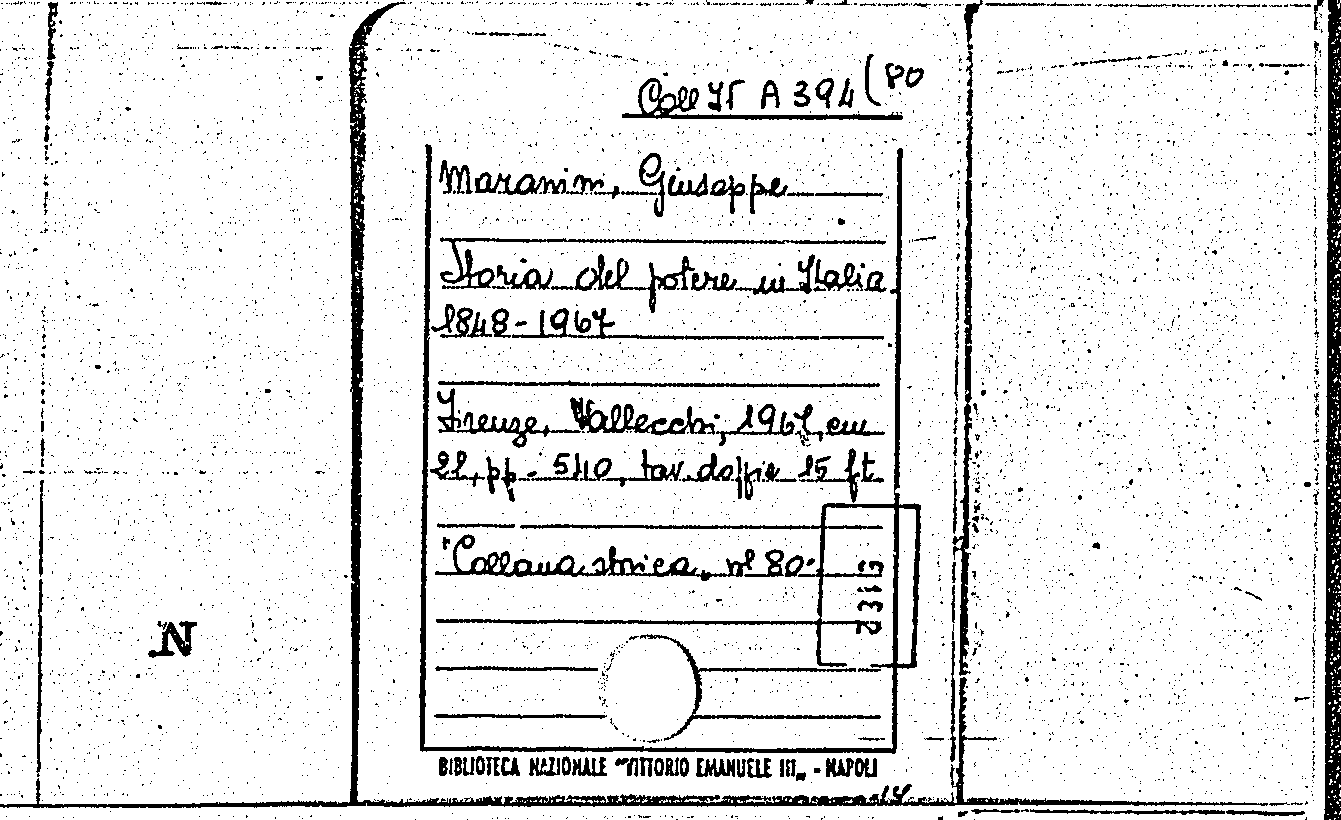 Coll It A 394 (80
Maranini, Giuseppe
Storia del potere in Italia
1848-1967
Firenze, Vallecchi, 1967, cm
22, pp. 540, tav. doppie 15 ft
"Collana storica, vol 80"
2315
BIBLIOTECA NAZIONALE "VITTORIO EMANUELE III„ - NAPOLI
N.